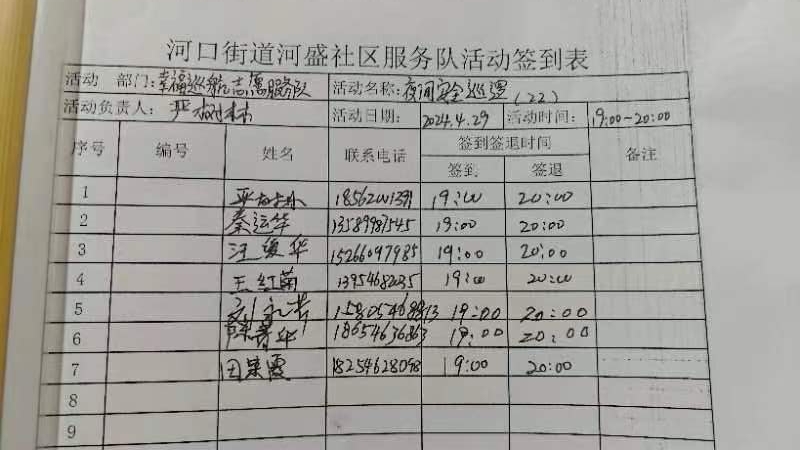 河口街道河盛社区服务队活动签到表
活动 部门: 幸福巡航志愿服务队 活动名称: 夜间安全巡逻(22)
活动负责人: 严树林 活动日期: 2024.4.29 活动时间: 19:00~20:00
序号 编号 姓名 联系电话 签到签退时间 备注
签到 签退
1 严树林 18562001391 19:00 20:00
2 秦运华 13589987545 19:00 20:00
3 汪爱华 15266097985 19:00 20:00
4 王红菊 13954682035 19:00 20:00
5 19:00 20:00
6 18654636863 19:00 20:00
7 田荣霞 18254628098 19:00 20:00
8
9